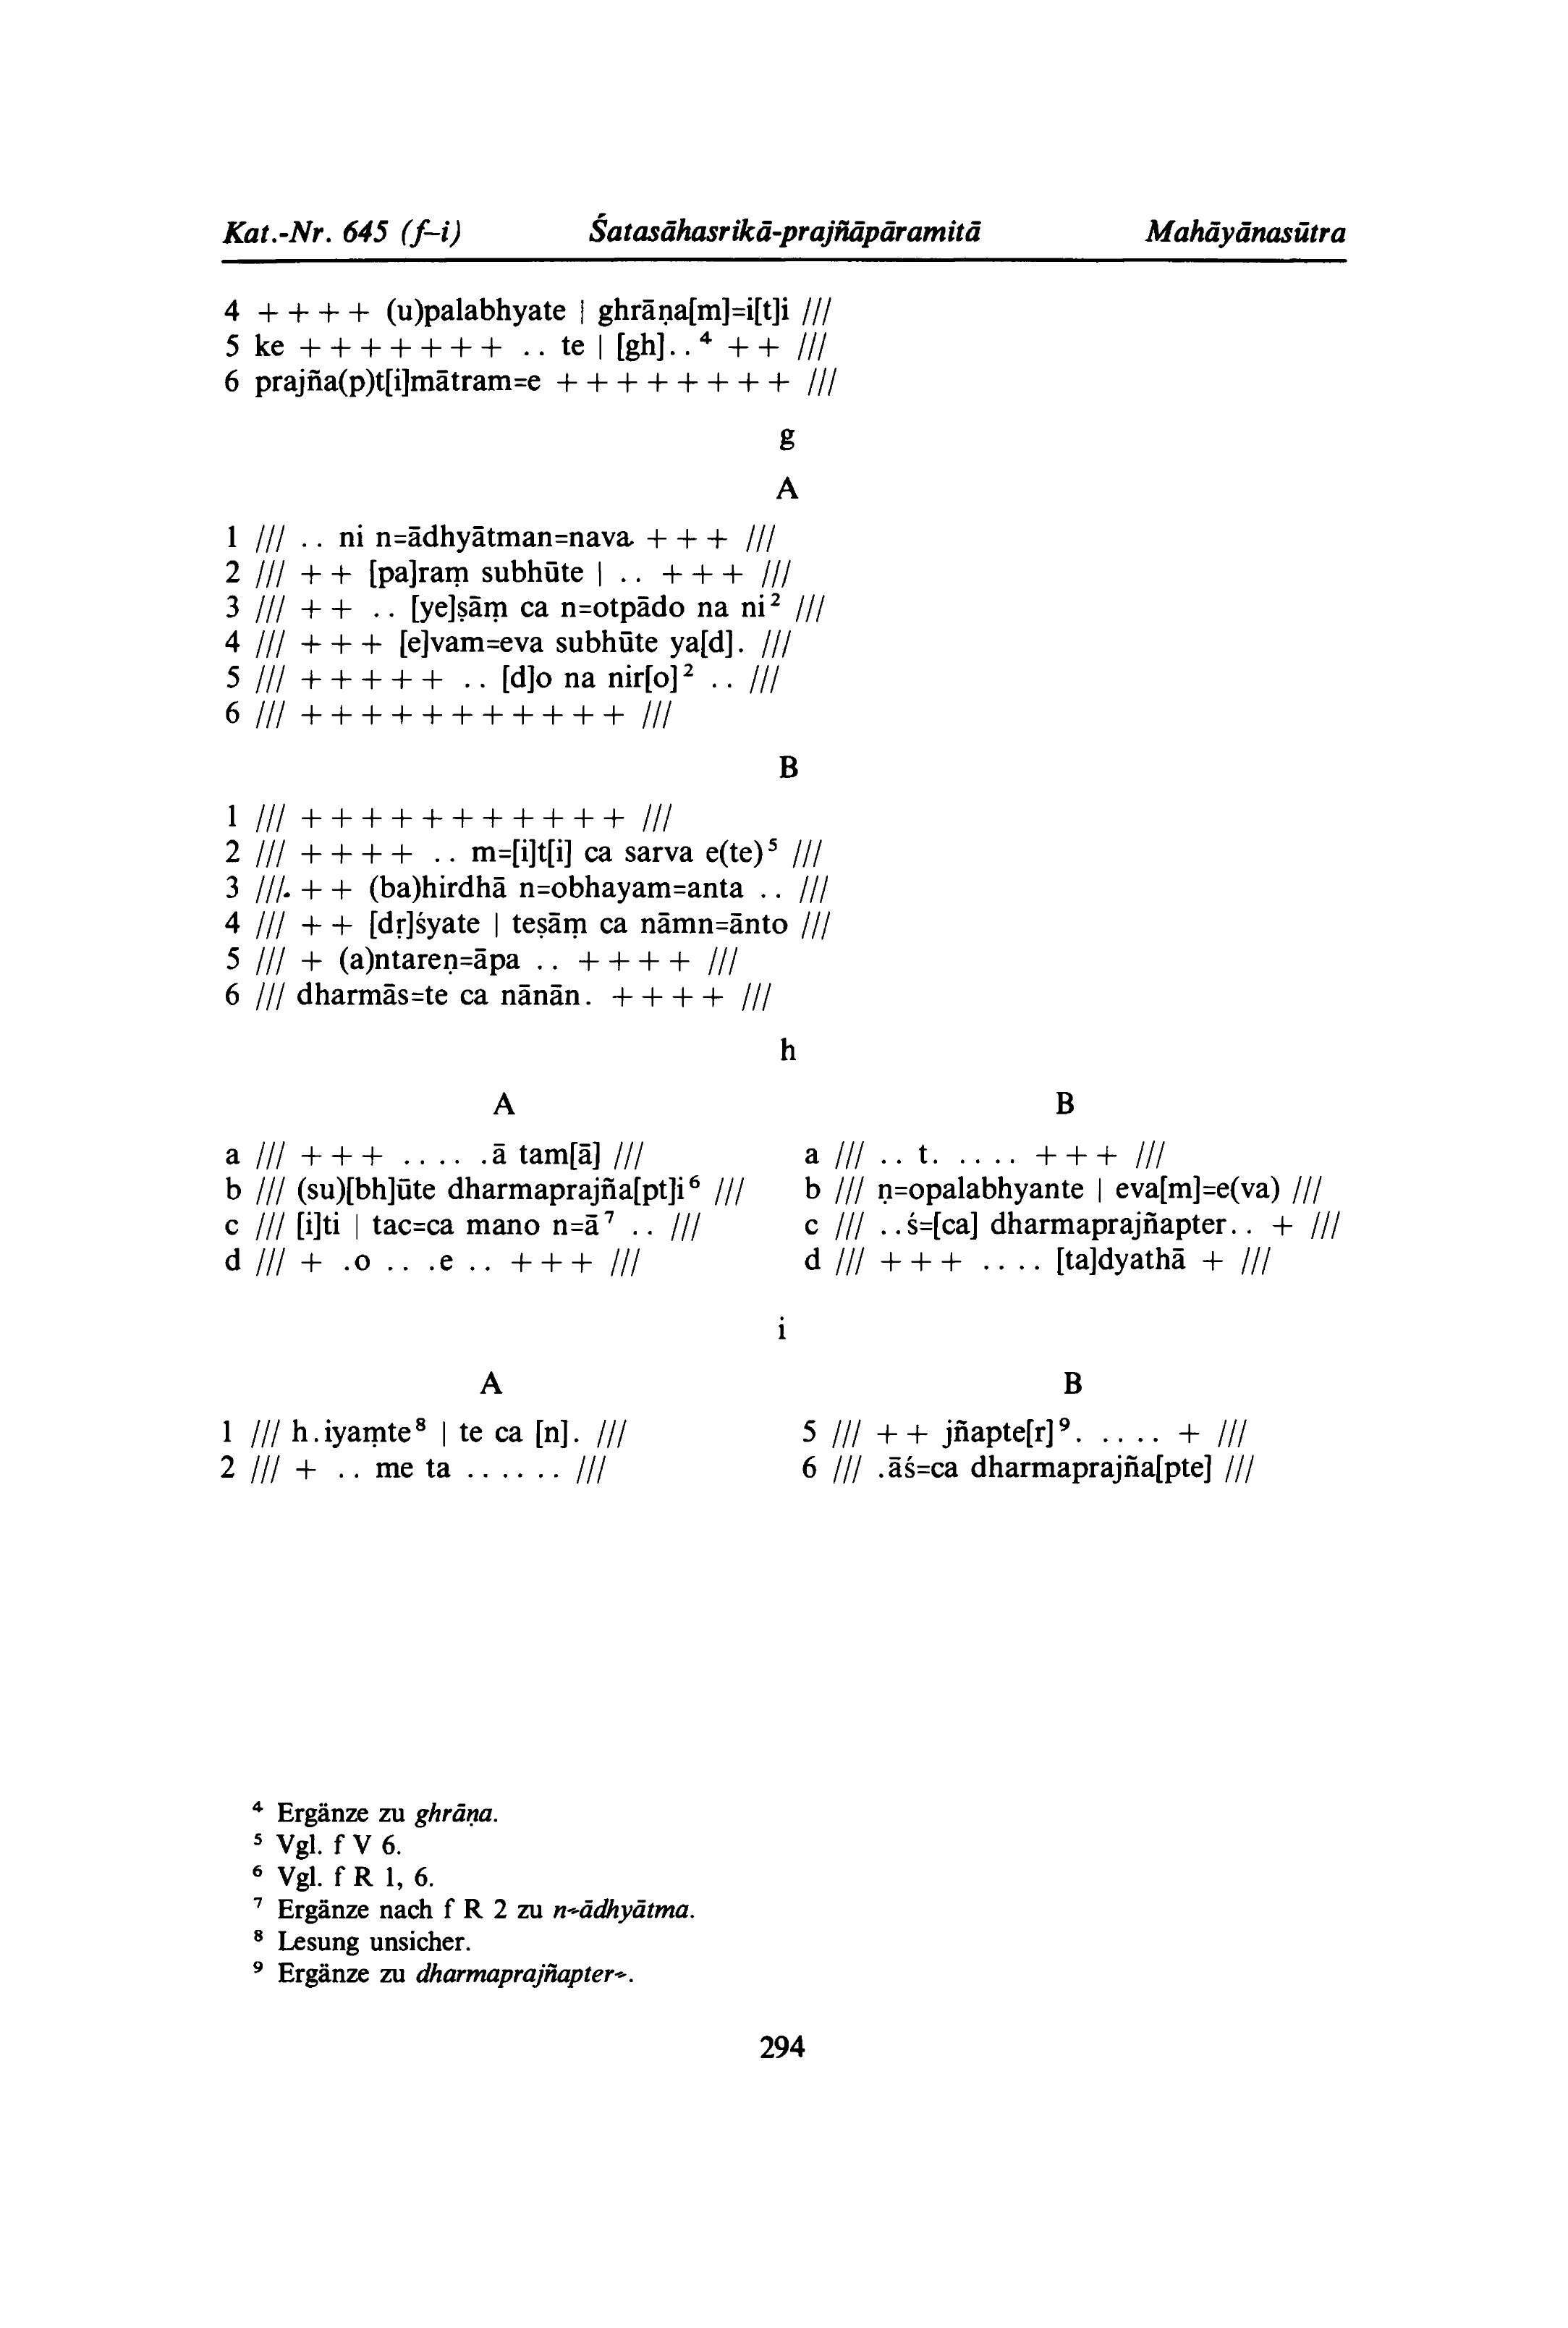 Kat.-Nr. 645 (f–i) Śatasāhasrikā-prajñāpāramitā Mahāyānasūtra
4 + + + + (u)palabhyate | ghrāṇa[m]=i[t]i ///
5 ke + + + + + + + .. te | [gh]..⁴ + + ///
6 prajña(p)t[i]mātram=e + + + + + + + + ///
g
A
1 /// .. ni n=ādhyātman=nava. + + + ///
2 /// + + [pa]raṃ subhūte | .. + + + ///
3 /// + + .. [ye]ṣāṃ ca n=otpādo na ni² ///
4 /// + + + [e]vam=eva subhūte ya[d]. ///
5 /// + + + + + .. [d]o na nir[o]² .. ///
6 /// + + + + + + + + + + + ///
B
1 /// + + + + + + + + + + + ///
2 /// + + + + .. m=[i]t[i] ca sarva e(te)⁵ ///
3 ///. + + (ba)hirdhā n=obhayam=anta .. ///
4 /// + + [dṛ]śyate | teṣāṃ ca nāmn=ānto ///
5 /// + (a)ntareṇ=āpa .. + + + + ///
6 /// dharmās=te ca nānān. + + + + ///
h
A B
a /// + + + .. .. .ā tam[ā] /// a /// .. t. .. .. + + + ///
b /// (su)[bh]ūte dharmaprajña[pt]i⁶ /// b /// ṇ=opalabhyante | eva[m]=e(va) ///
c /// [i]ti | tac=ca mano n=ā⁷ .. /// c /// ..ś=[ca] dharmaprajñapter.. + ///
d /// + .o .. .e .. + + + /// d /// + + + .. .. [ta]dyathā + ///
i
A B
1 /// h.iyaṃte⁸ | te ca [n]. /// 5 /// + + jñapte[r]⁹. .. .. + ///
2 /// + .. me ta .. .. .. /// 6 /// .āś=ca dharmaprajña[pte] ///
⁴ Ergänze zu ghrāṇa.
⁵ Vgl. f V 6.
⁶ Vgl. f R 1, 6.
⁷ Ergänze nach f R 2 zu n=ādhyātma.
⁸ Lesung unsicher.
⁹ Ergänze zu dharmaprajñapter=.
294